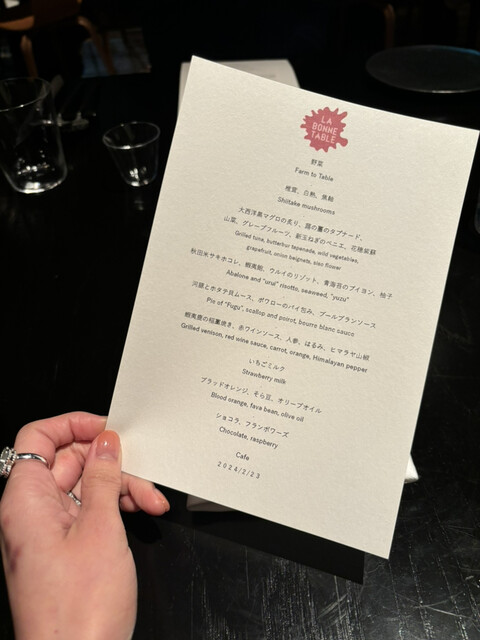 LA
BONNE
TABLE
野菜
Farm to Table
椎茸、白麹、焦麹
Shiitake mushrooms
大西洋黒マグロの炙り、蕗の薹のタプナード、
山菜、グレープフルーツ、新玉ねぎのベニエ、花穂紫蘇
Grilled tuna, butterbur tapenade, wild vegetables,
grapefruit, onion beignets, siso flower
秋田米サキホコレ、蝦夷鮑、ウルイのリゾット、青海苔のブイヨン、柚子
Abalone and "urui" risotto, seaweed, "yuzu"
河豚とホタテ貝ムース、ポワローのパイ包み、ブールブランソース
Pie of "Fugu", scallop and poirot, beurre blanc sauce
蝦夷鹿の稲藁焼き、赤ワインソース、人参、はるみ、ヒマラヤ山椒
Grilled venison, red wine sauce, carrot, orange, Himalayan pepper
いちごミルク
Strawberry milk
ブラッドオレンジ、そら豆、オリーブオイル
Blood orange, fava bean, olive oil
ショコラ、フランボワーズ
Chocolate, raspberry
Cafe
2024/2/23